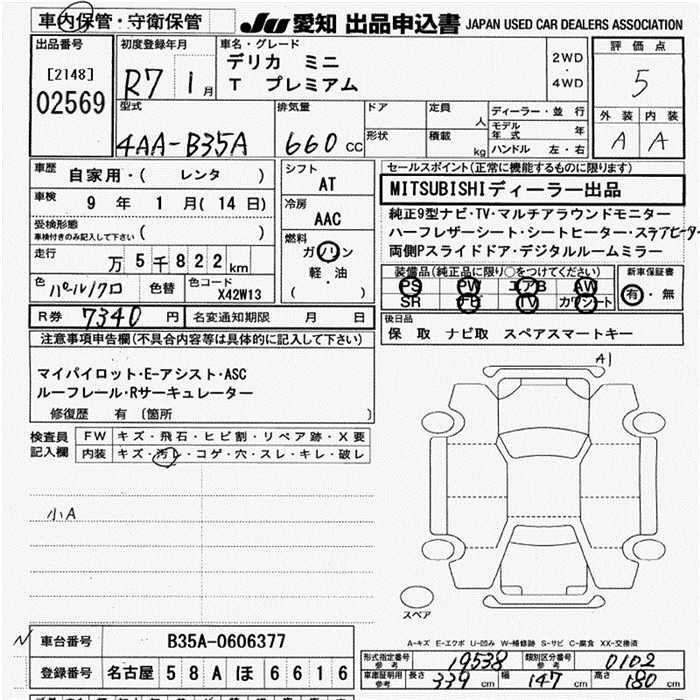 車内保管・守衛保管
JU 愛知 出品申込書 JAPAN USED CAR DEALERS ASSOCIATION
出品番号
[2148]
02569
初度登録年月
R7 1月
車名・グレード
デリカ ミニ
T プレミアム
2WD
・
4WD
評価点
5
外装 内装
A A
型式
4AA-B35A
排気量
660 CC
ドア
形状
定員
人
積載
kg
ディーラー・並行
モデル年式 年
ハンドル 左・右
車歴 自家用・( レンタ )
車検 9年 1月(14日)
受検形態
車検付きのみ記入して下さい ( )
走行 万5千822km
色 パール/クロ 色替 色コード X42W13
シフト
AT
冷房
AAC
燃料
ガソリン
軽・油
( )
セールスポイント(正常に機能するものに限ります)
MITSUBISHIディーラー出品
純正9型ナビ・TV・マルチアラウンドモニター
ハーフレザーシート・シートヒーター・ステアヒーター
両側Pスライドドア・デジタルルームミラー
装備品(純正品に限り○をつけてください)
PS PW エアB AW
SR TV
新車保証書
有・無
R券 7340円 名変通知期限 月 日
後日品
保 取 ナビ取 スペアスマートキー
注意事項申告欄(不具合内容等は具体的に記入して下さい)
マイパイロット・E-アシスト・ASC
ルーフレール・Rサーキュレーター
修復歴 有 〔箇所 〕
検査員
記入欄
FW キズ・飛石・ヒビ割・リペア跡・X要
内装 キズ・汚レ・コゲ・穴・スレ・キレ・破レ
小A
A1
スペア
A-キズ E-エクボ U-凹み W-補修跡 S-サビ C-腐食 XX-交換済
車台番号 B35A-0606377
登録番号 名古屋 58A ほ 6616
形式指定番号 参考 19538 類別区分番号 参考 0102
車庫証明用 参考 長さ 339cm 幅 147cm 高さ 180cm